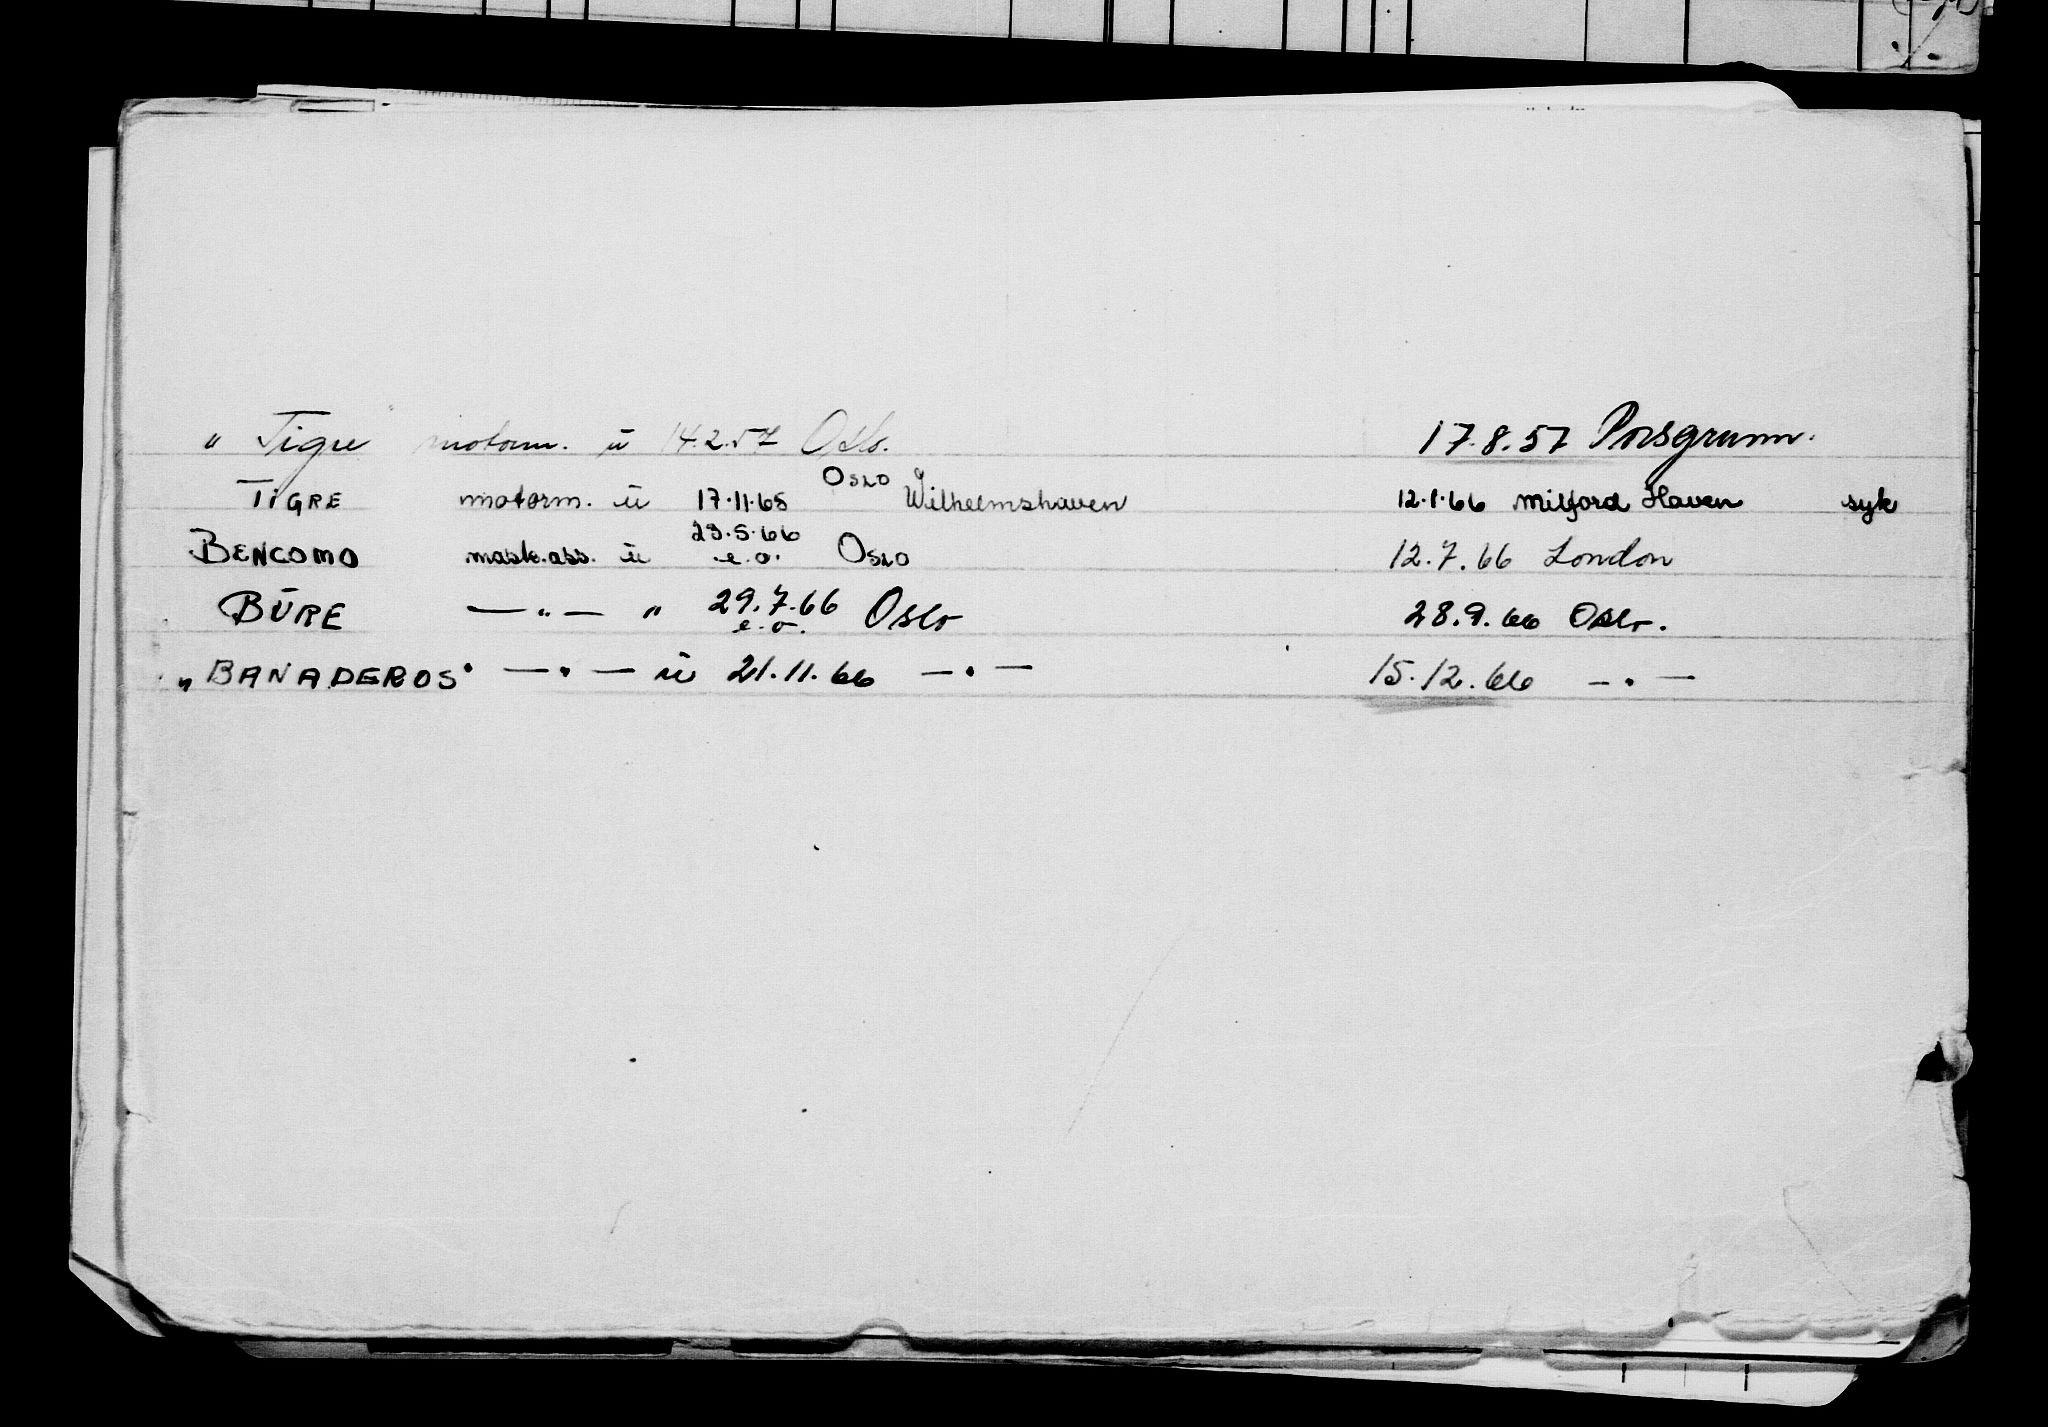 " Tigre " motorm. ū 14.2.57 Oslo. 17.8.57 Porsgrunn.
TiGRE motorm. ū 17.11.65 Oslo Wilhelmshaven 12.1.66 Milford Haven syk
BENCOMO mask.ass. ū 23.5.66 e.o. OSLO 12.7.66 London
BŪRE — " — " 29.7.66 e.o. Oslo 28.9.66 Oslo.
„BANADEROS" — " — ū 21.11.66 — " — 15.12.66 — " —